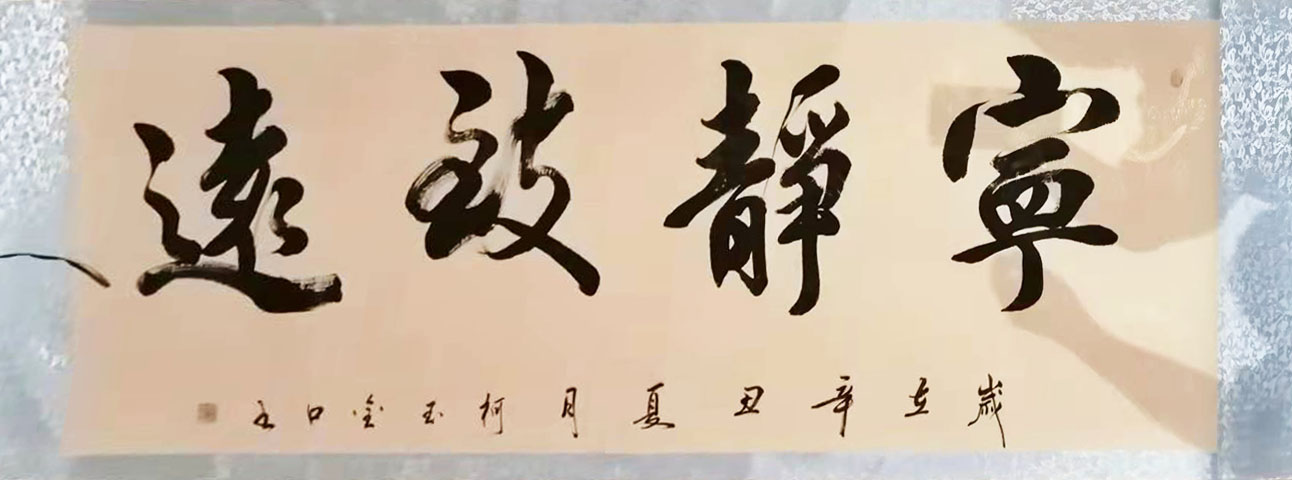 寧靜致遠
歲在辛丑夏月柯玉金口